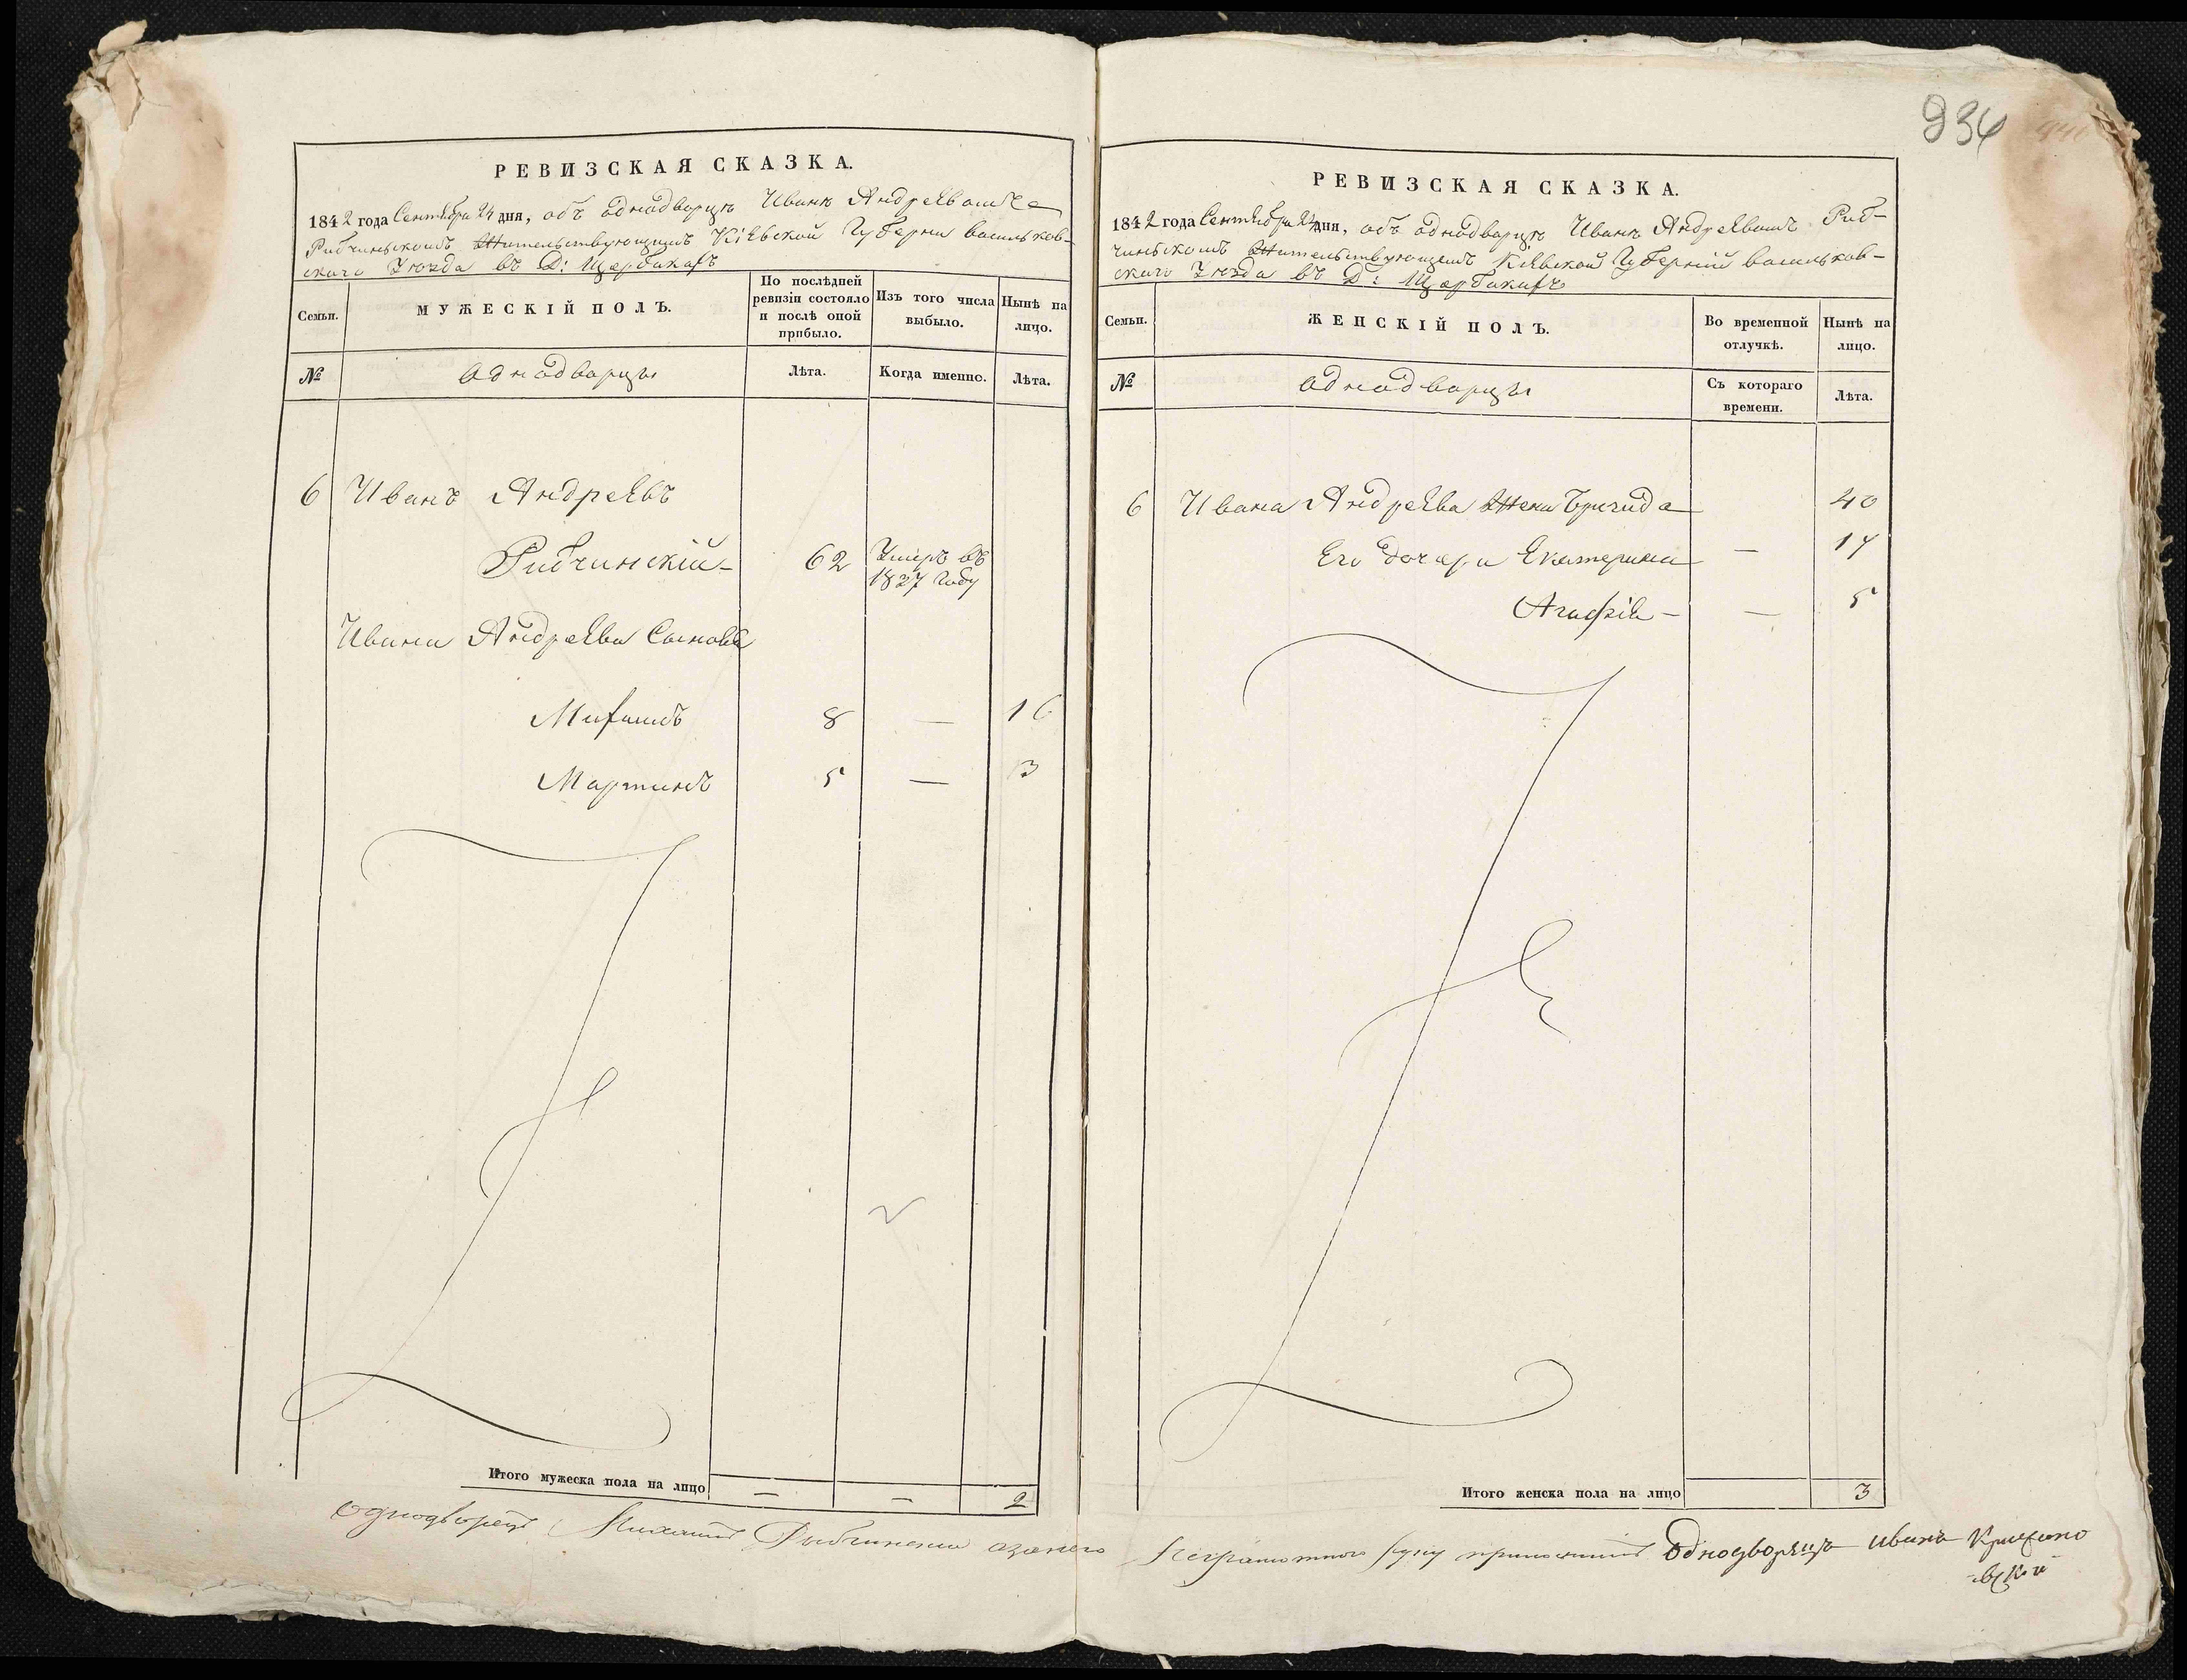 934
РЕВИЗСКАЯ СКАЗКА.
1842 года Сентября 24 дня, объ однодворцѣ Иванѣ Андреевомъ
Рибчиньскомъ Жительствующимъ Кіевской Губерни васильков-
скаго Уѣзда въ Д: Щербакахъ
Семьи.
МУЖЕСКІЙ ПОЛЪ.
По послѣдней
ревизіи состояло
и послѣ оной
прибыло.
Изъ того числа
выбыло.
Нынѣ на
лицо.
№
однодворцы
Лѣта.
Когда именно.
Лѣта.
6 Иванъ Андреевъ
Рибчинскій - 62 Умеръ въ
1827 году
Ивана Андреева Сыновья
Михаилъ 8 — 16
Мартинъ 5 — 13
Итого мужеска пола на лицо — — 2
РЕВИЗСКАЯ СКАЗКА.
1842 года Сентября 24 дня, объ однодворцѣ Иванѣ Андреевомъ Риб-
чиньскомъ Жительствующемъ Кіевской Губерніи васильков-
скаго Уѣзда въ Д: Щербакахъ
Семьи.
ЖЕНСКІЙ ПОЛЪ.
Во временной
отлучкѣ.
Нынѣ на
лицо.
№
однодворцы
Съ котораго
времени.
Лѣта.
6 Ивана Андреева Жена Бригида — 40
Его дочери Екатерина — 14
Агафія — — 5
Итого женска пола на лицо 3
однодворецъ Михаилъ Рыбчински а за него неграмотного руку приложилъ Однодворецъ Иванъ